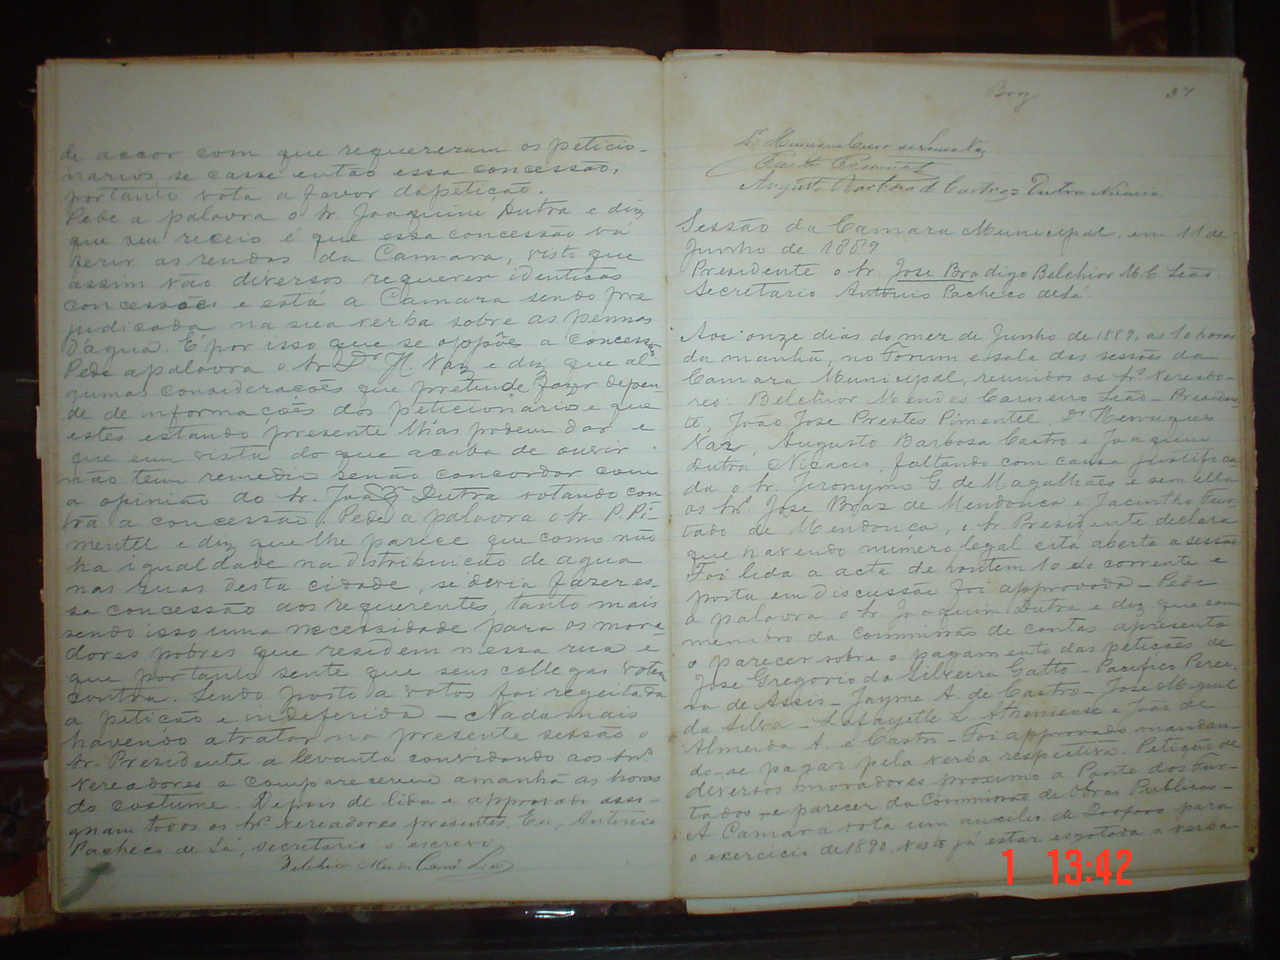 de accor com que requereram os peticio-
narios, se casse então essa concessão,
portanto vota a favor da petição.
Pede a palavra o Sr. Joaquim Dutra e diz
que seu receio é que essa concessão vá
ferir as rendas da Camara, visto que
assim vão diversos requerer identicas
concessões e está a Camara sendo pre
judicada na sua verba sobre as pennas
d'agua. É por isso que se oppõe a concessão.
Pede a palavra o Sr. Dr. H. Vaz e diz que al-
gumas considerações que pretende fazer depen-
de de informações dos peticionarios e que
estes estando presente lh'as podem dar e
que em vista do que acaba de ouvir
não tem remedio senão concordar com
a opinião do Sr. Joaqm Dutra votando con
tra a concessão. Pede a palavra o Sr. P. Pi-
mentel e diz que lhe parece que como não
ha igualdade na distribuição de agua
nas ruas desta cidade, se devia fazer es-
sa concessão aos requerentes, tanto mais
sendo isso uma necessidade para os mora-
dores pobres que residem nessa rua e
que portanto sente que seus collegas votem
contra. Sendo posto a votos foi regeitada
a petição e indeferida — Nada mais
havendo a tratar na presente sessão o
Sr. Presidente a levanta convidando aos Srs.
Vereadores a comparecerem amanhã as horas
do costume. Depois de lida e approvada assi-
gnam todos os Srs. vereadores presentes. Eu, Antonio
Pacheco de Sá, secretario o escrevi
Belchior Mendes Carnro. Leão
Braz 37
Augusto Barbosa de Castro = Dutra Nicacio
Sessão da Camara Municipal, em 11 de
Junho de 1889
Presidente o Sr. José Bra digo Belchior M. C. Leão
Secretario Antonio Pacheco de Sá
Aos onze dias do mez de Junho de 1889, as 10 horas
da manhã, no Forum e sala das sessões da
Camara Municipal, reunidos os Srs. Vereado-
res: Belchior Mendes Carneiro Leão - Presiden-
te, João José Prestes Pimentel, Dr. Henriques
Vaz, Augusto Barbosa Castro e Joaquim
Dutra Nicacio, faltando com causa justifica-
da o Sr. Jeronymo G. de Magalhães e sem ella
os Srs. José Braz de Mendonça e Jacintho Fur-
tado de Mendonça, o Sr. Presidente declara
que havendo número legal está aberta a sessão
Foi lida a acte de hontem 10 do corrente e
posta em discussão foi approvada - Pede
a palavra o Sr. Joaquim Dutra e diz que como
membro da commissão de contas apresenta
o parecer sobre o pagamento das petições de
José Gregorio da Silveira Gatto - Pacifico Perei-
ra de Assis - Jayme A. de Castro - José Miguel
da Silva - Lafayette L. Atheniense e João de
Almeida A. e Castro - Foi approvado mandan-
do-se pagar pela verba respectiva. Petição de
diversos moradores proximo a Ponte dos Fur-
tados - e parecer da Commissão de Obras Publicas -
A Camara vota um auxilio de para
o exercicio de 1890, visto já estar esgotada a verba
1 13:42